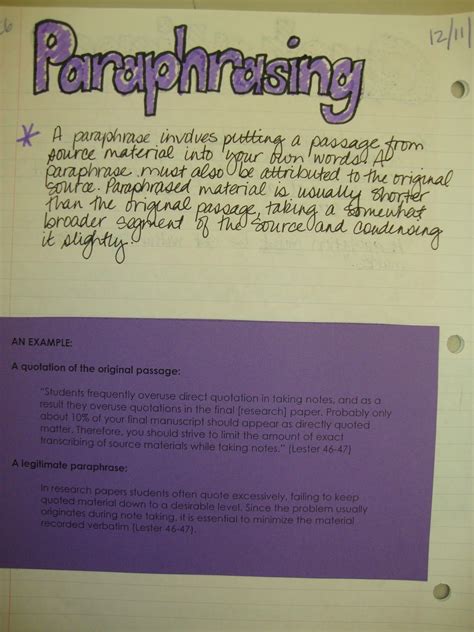 6
12/11
Paraphrasing
* A paraphrase involves putting a passage from
source material into your own words. A
paraphrase must also be attributed to the original
source. Paraphrased material is usually shorter
than the original passage, taking a somewhat
broader segment of the source and condensing
it slightly.
AN EXAMPLE:
A quotation of the original passage:
"Students frequently overuse direct quotation in taking notes, and as a
result they overuse quotations in the final [research] paper. Probably only
about 10% of your final manuscript should appear as directly quoted
matter. Therefore, you should strive to limit the amount of exact
transcribing of source materials while taking notes." (Lester 46-47)
A legitimate paraphrase:
In research papers students often quote excessively, failing to keep
quoted material down to a desirable level. Since the problem usually
originates during note taking, it is essential to minimize the material
recorded verbatim (Lester 46-47).